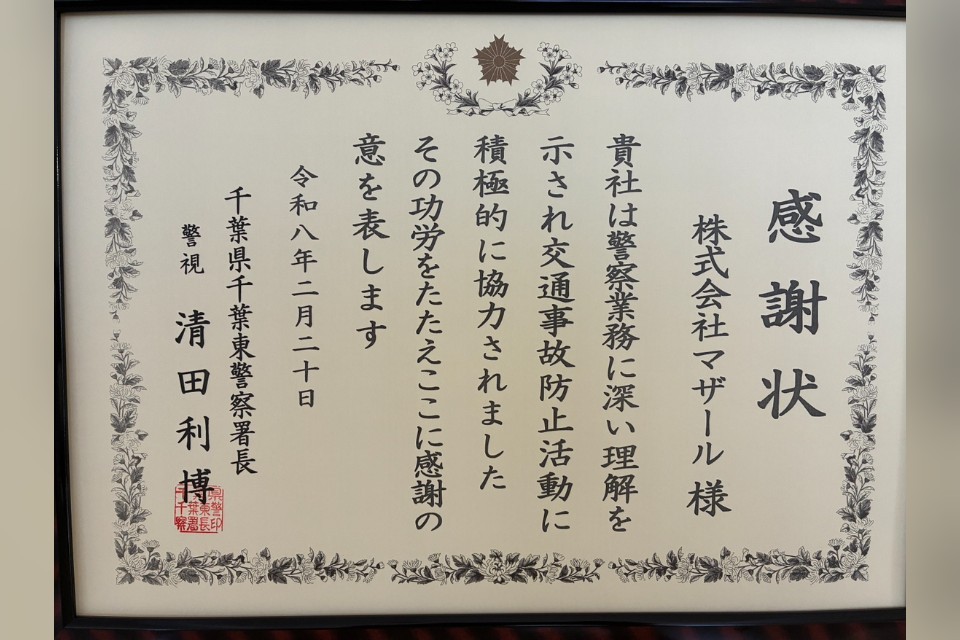 感謝状
株式会社マザール 様
貴社は警察業務に深い理解を
示され交通事故防止活動に
積極的に協力されました
その功労をたたえここに感謝の
意を表します
令和八年二月二十日
千葉県千葉東警察署長
警視 清田利博